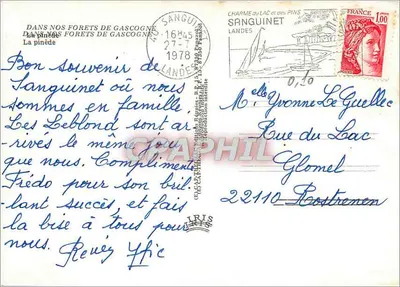 DANS NOS FORETS DE GASCOGNE
La pinède
Bon souvenir de
Sanguinet où nous
sommes en famille
Les Leblond sont ar-
rivés le même jour
que nous. Compliments
Frédo pour son bril-
lant succès, et fais
la bise à tous pour
nous.
SANGUINET
16H45
27-7
1978
LANDES
CHARME DU LAC ET DES PINS
SANGUINET
LANDES
1,00
0,20
Melle Yvonne Le Guellec
Rue du Lac
Glomel
22110 Rostrenen
IRIS